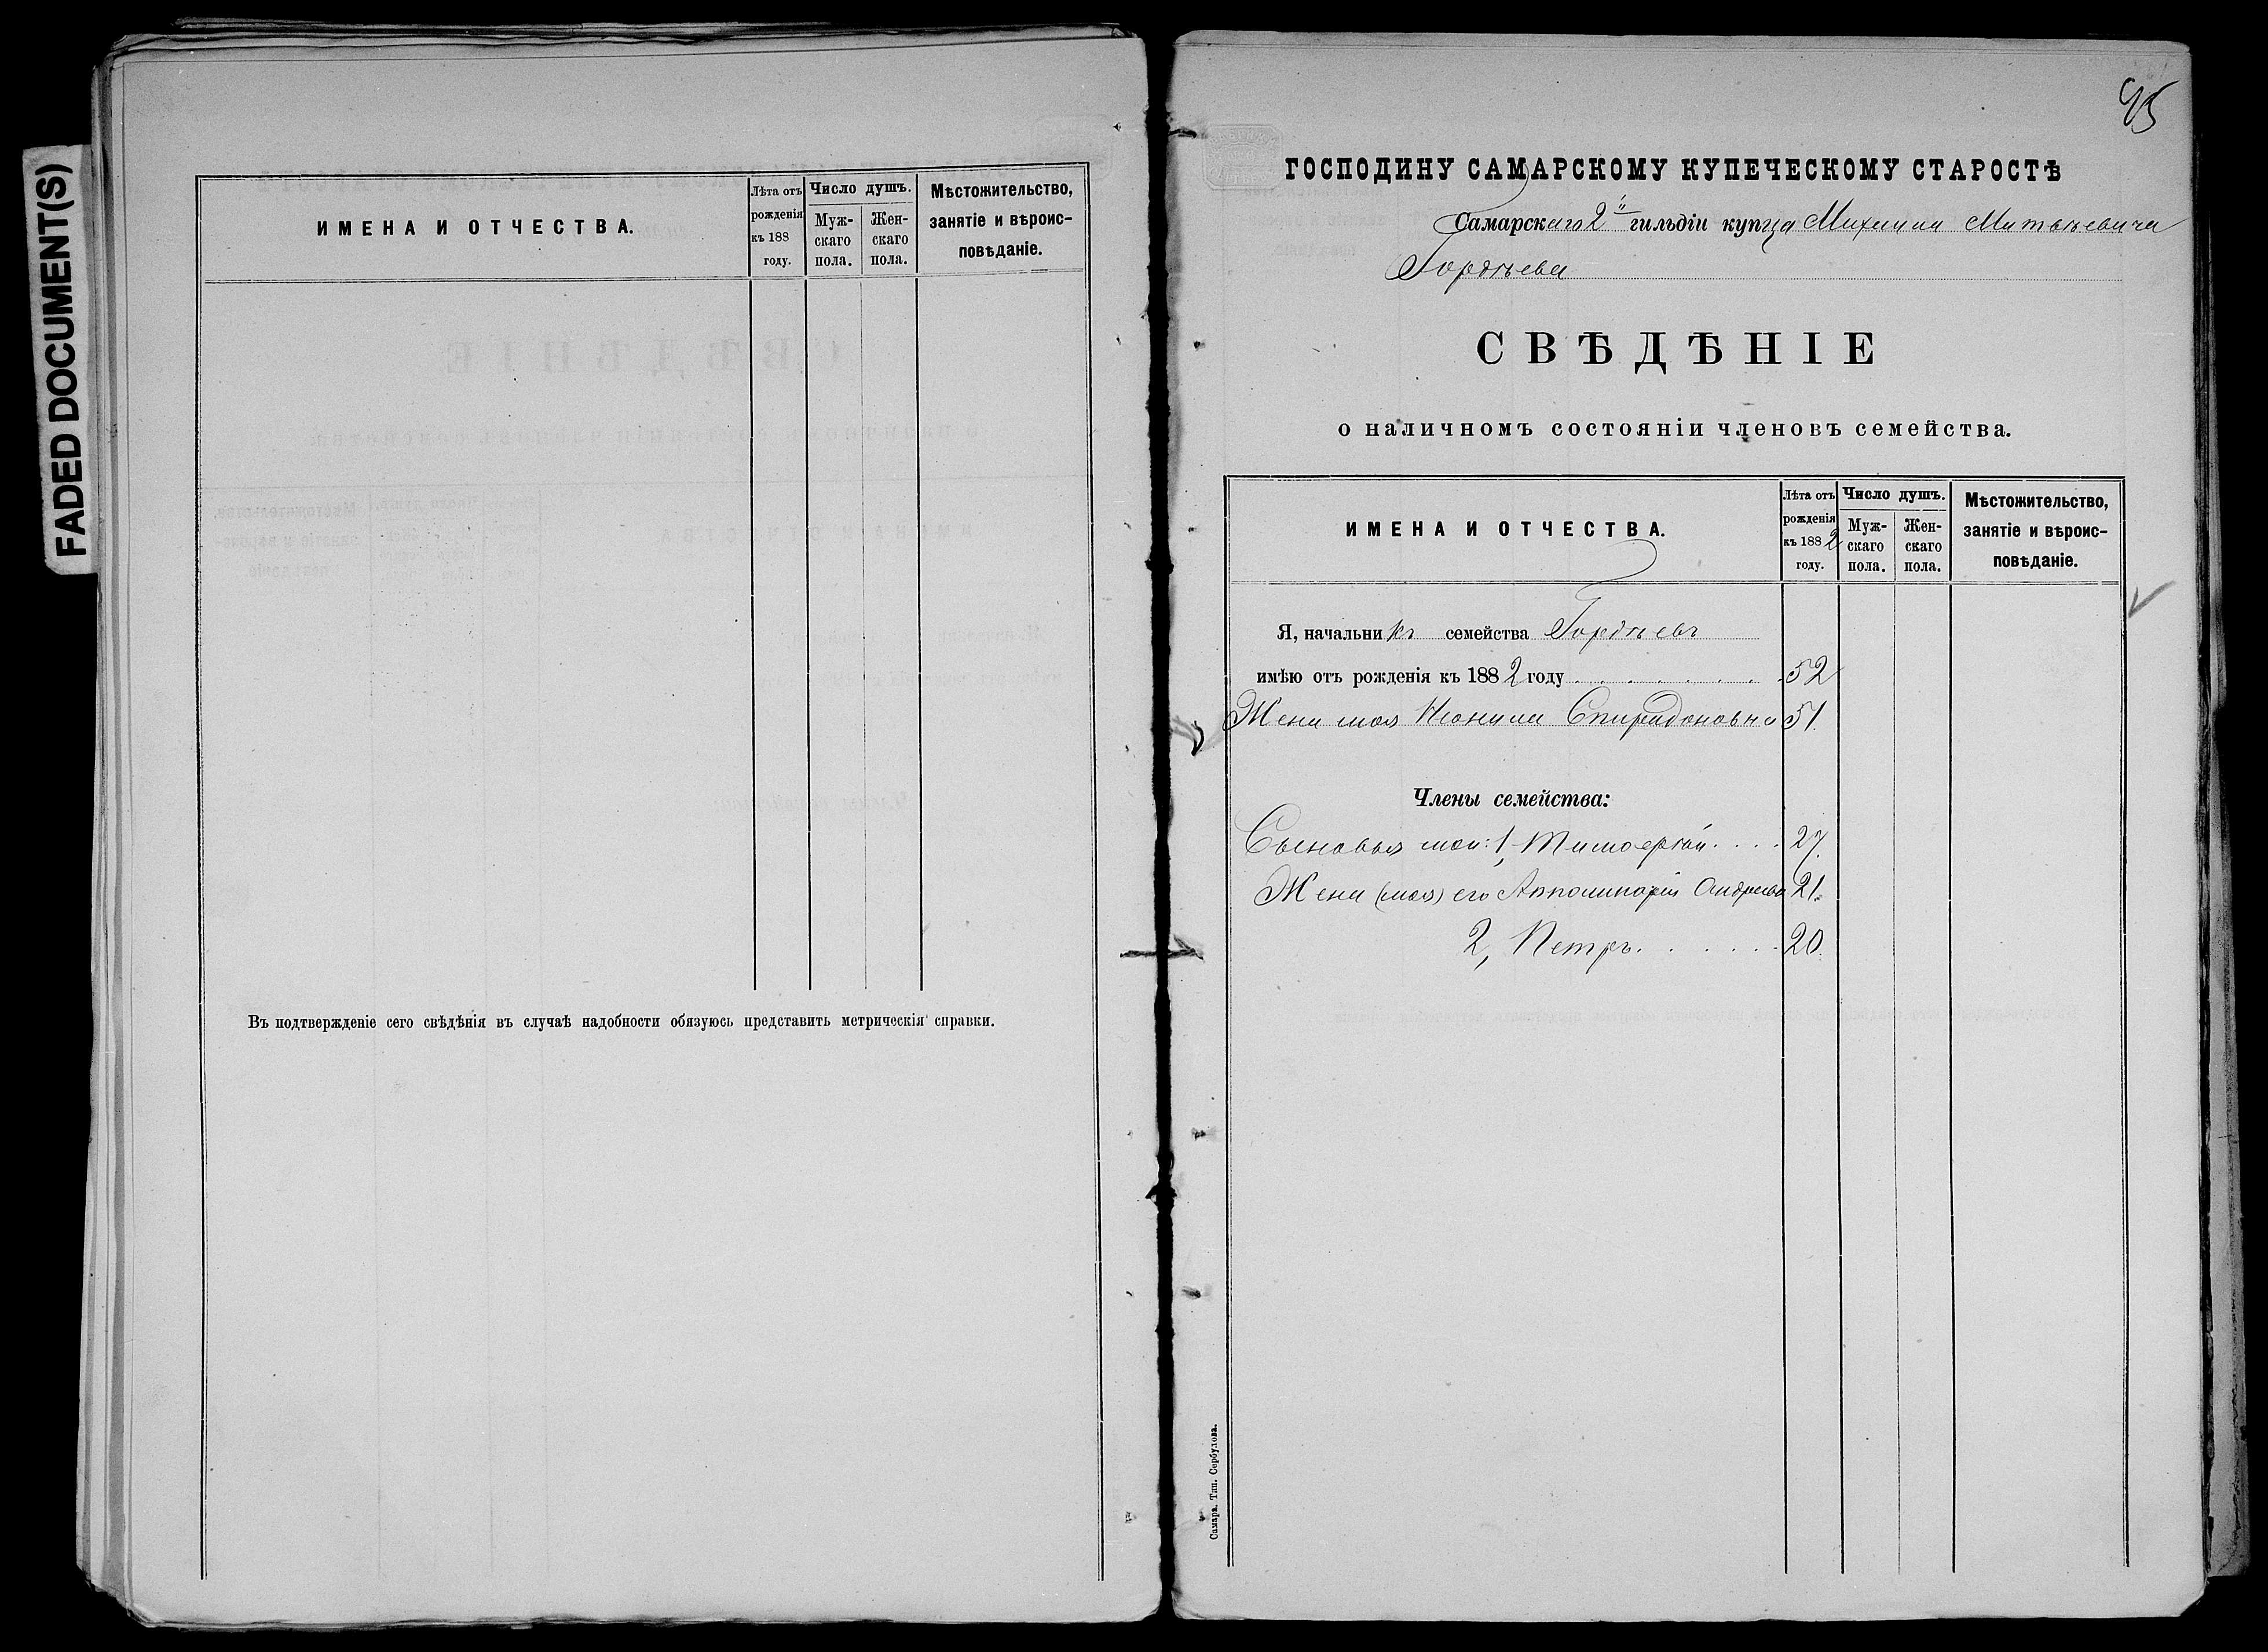 FADED DOCUMENT(S)
ИМЕНА И ОТЧЕСТВА.
Лѣта отъ рожденія къ 188 году.
Число душъ.
Мужскаго пола.
Женскаго пола.
Мѣстожительство, занятіе и вѣроисповѣданіе.
Въ подтвержденіе сего свѣдѣнія въ случаѣ надобности обязуюсь представить метрическія справки.
95
ГОСПОДИНУ САМАРСКОМУ КУПЕЧЕСКОМУ СТАРОСТѢ
Самарскаго 2й гильдіи купца Михаила Матвѣевича
Гордѣева
СВѢДѢНІЕ
о наличномъ состояніи членовъ семейства.
ИМЕНА И ОТЧЕСТВА.
Лѣта отъ рожденія къ 1882 году.
Число душъ.
Мужскаго пола.
Женскаго пола.
Мѣстожительство, занятіе и вѣроисповѣданіе.
Я, начальникъ семейства Гордѣевъ
имѣю отъ рожденія къ 1882 году 52
Жена моя Неонила Спиридоновна 51.
Члены семейства:
Сыновья мои: 1, Тимофей 27.
Жена (моя) его Апполинарія Андреева 21.
2, Петръ 20.
Самара. Тип. Сербулова.